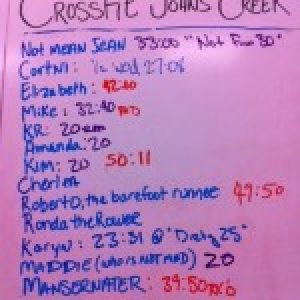 CROSSFIT JOHNS CREEK
Not MEAN JEAN 33:00 "Not Fun 30"
Cortni: 1/2 Wod 27:08
Elizabeth: 42:40
Mike: 32:40 RXD
KR: 20
Amanda: 20
Kim: 20 50:11
Cherlen
Robert D, the barefoot runner 49:50
Ronda the Rower
Karyn: 23:31 @ "Dirty 25"
MADDIE (who is NOT MAD) 20
MANSERNATER: 39:50 RXD